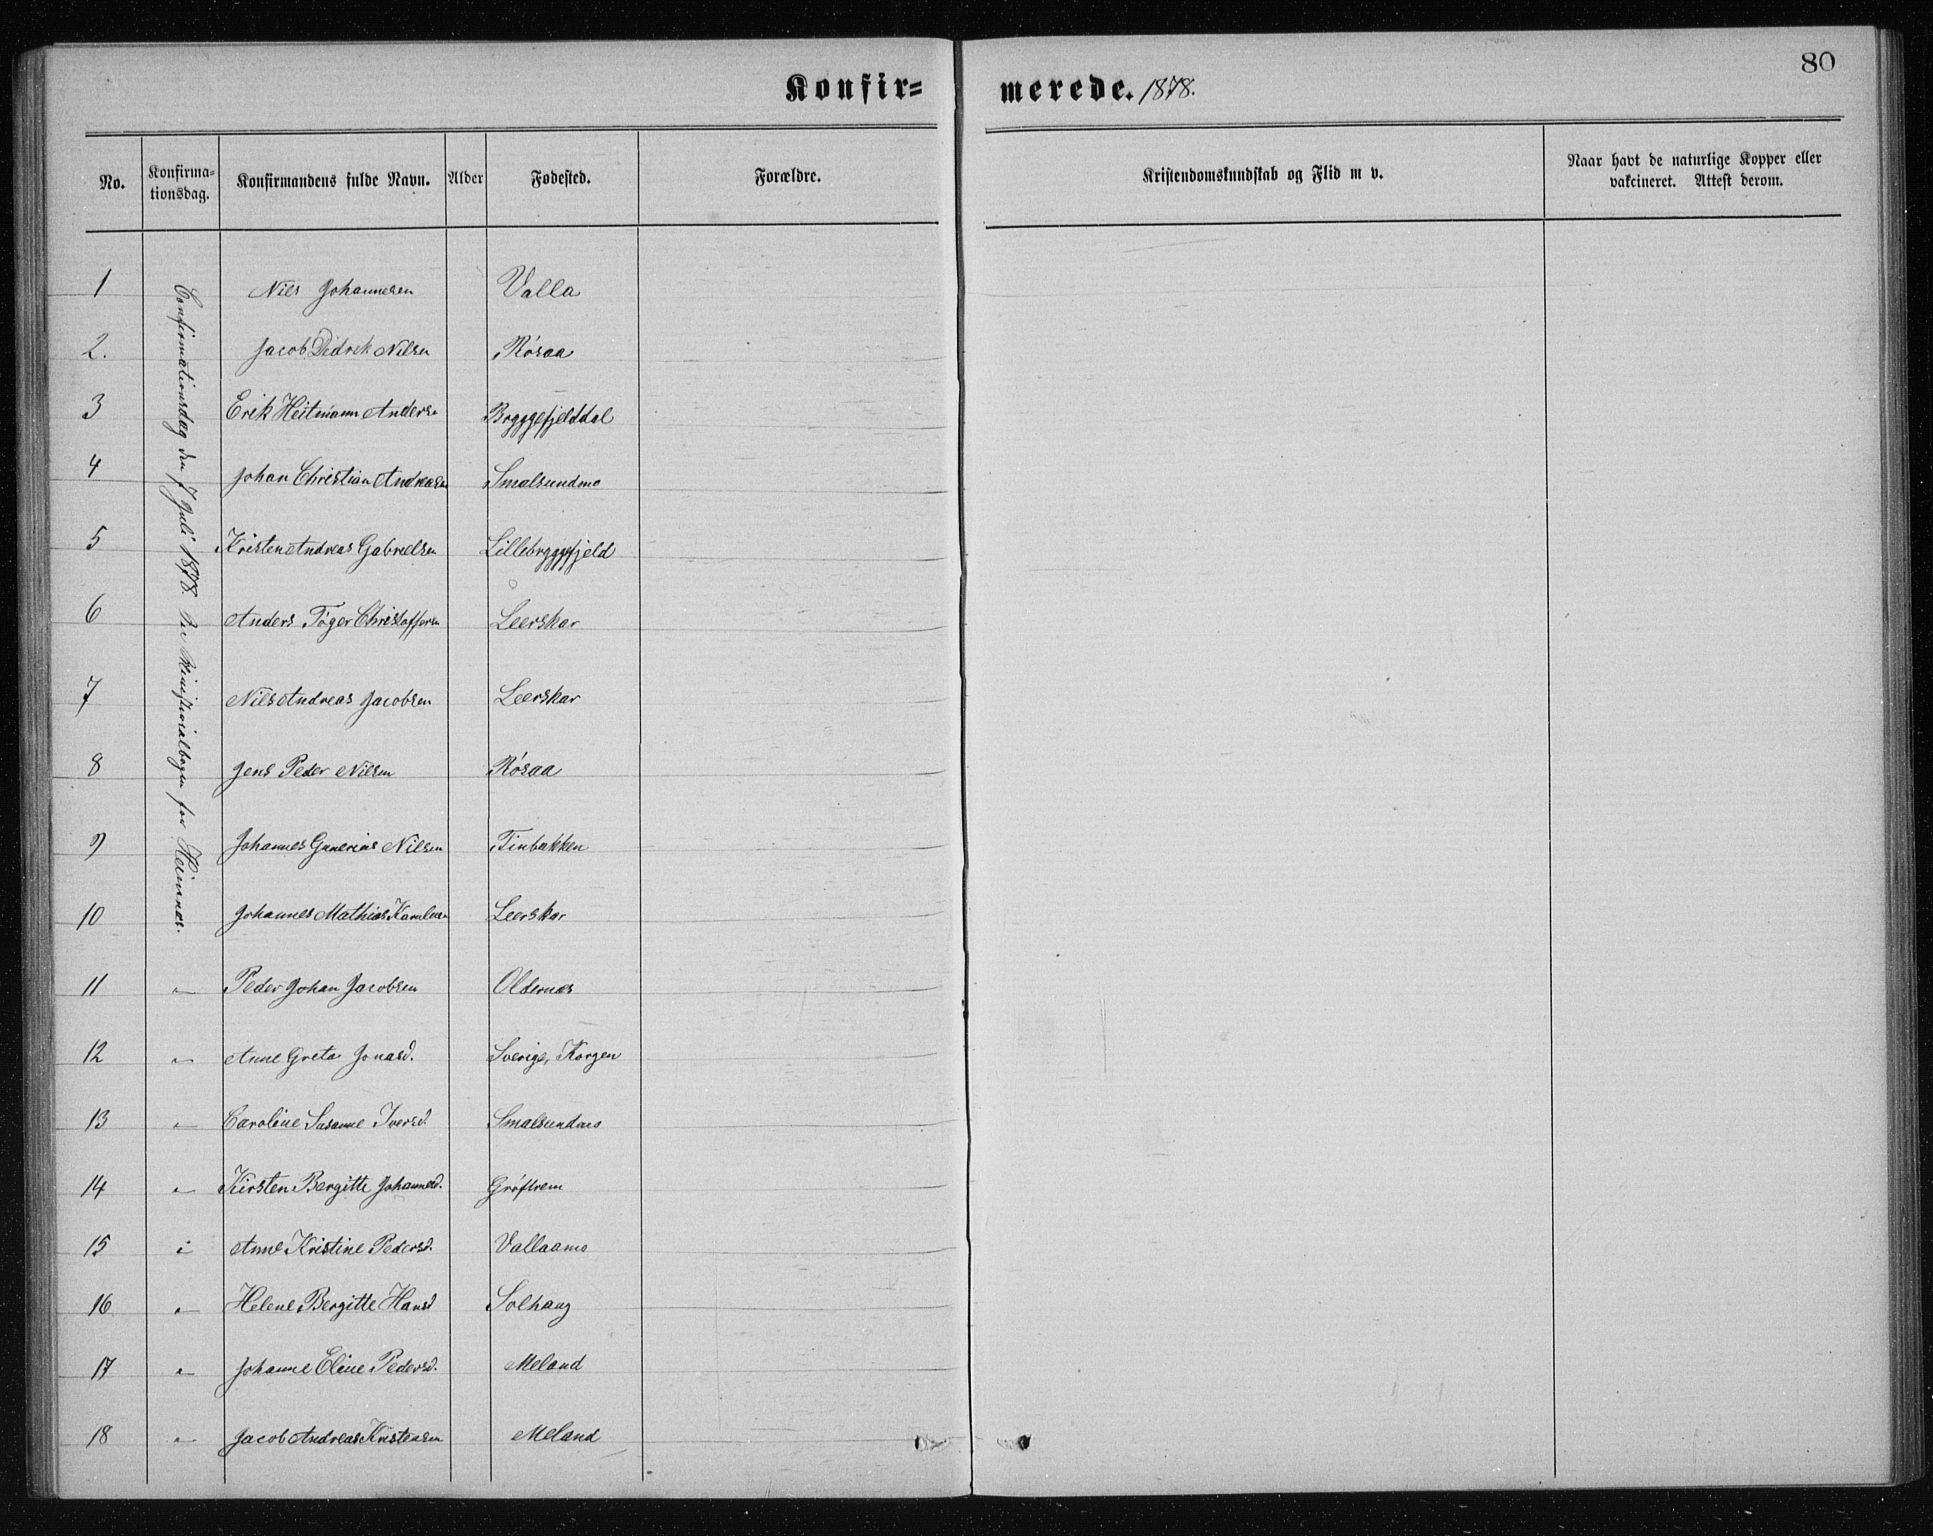 80
Konfir=merede. 1878.
No. Konfirma-tionsdag. Konfirmandens fulde Navn. Alder Fødested. Forældre. Kristendomskundskab og Flid m v. Naar havt de naturlige Kopper eller vakcineret. Attest derom.
Confirmationsdag den 7 Juli 1878. Se Ministerialbogen for Hemnes.
1 Nils Johannesen Valla
2. Jacob Didrek Nilsen Røsaa
3 Erik Heitmann Anderse Bryggefjelddal
4 Johan Christian Andreasen Smalsundmo
5 Kristen Andreas Gabrielsen Lillebryggefjeld
6 Anders Tøger Christoffersen Leerskar
7 Nils Andreas Jacobsen Leerskar
8 Jens Peder Nilsen Røsaa
9 Johannes Gunerius Nilsen Tinbakken
10 Johannes Mathias Leerskar
11 " Peder Johan Jacobsen Oldernæs
12 " Anne Greta Jonasd. Sverige, Korgen
13 " Caroline Susanne Iversd. Smalsundmo
14 " Kirsten Bergitte Johannesd. Grøftrem
15 " Anne Kristine Pedersd. Vallaamo
16 " Helene Bergitte Hansd Solhaug
17 " Johanne Eline Pedersd. Meland
18 " Jacob Andreas Kristensen Meland